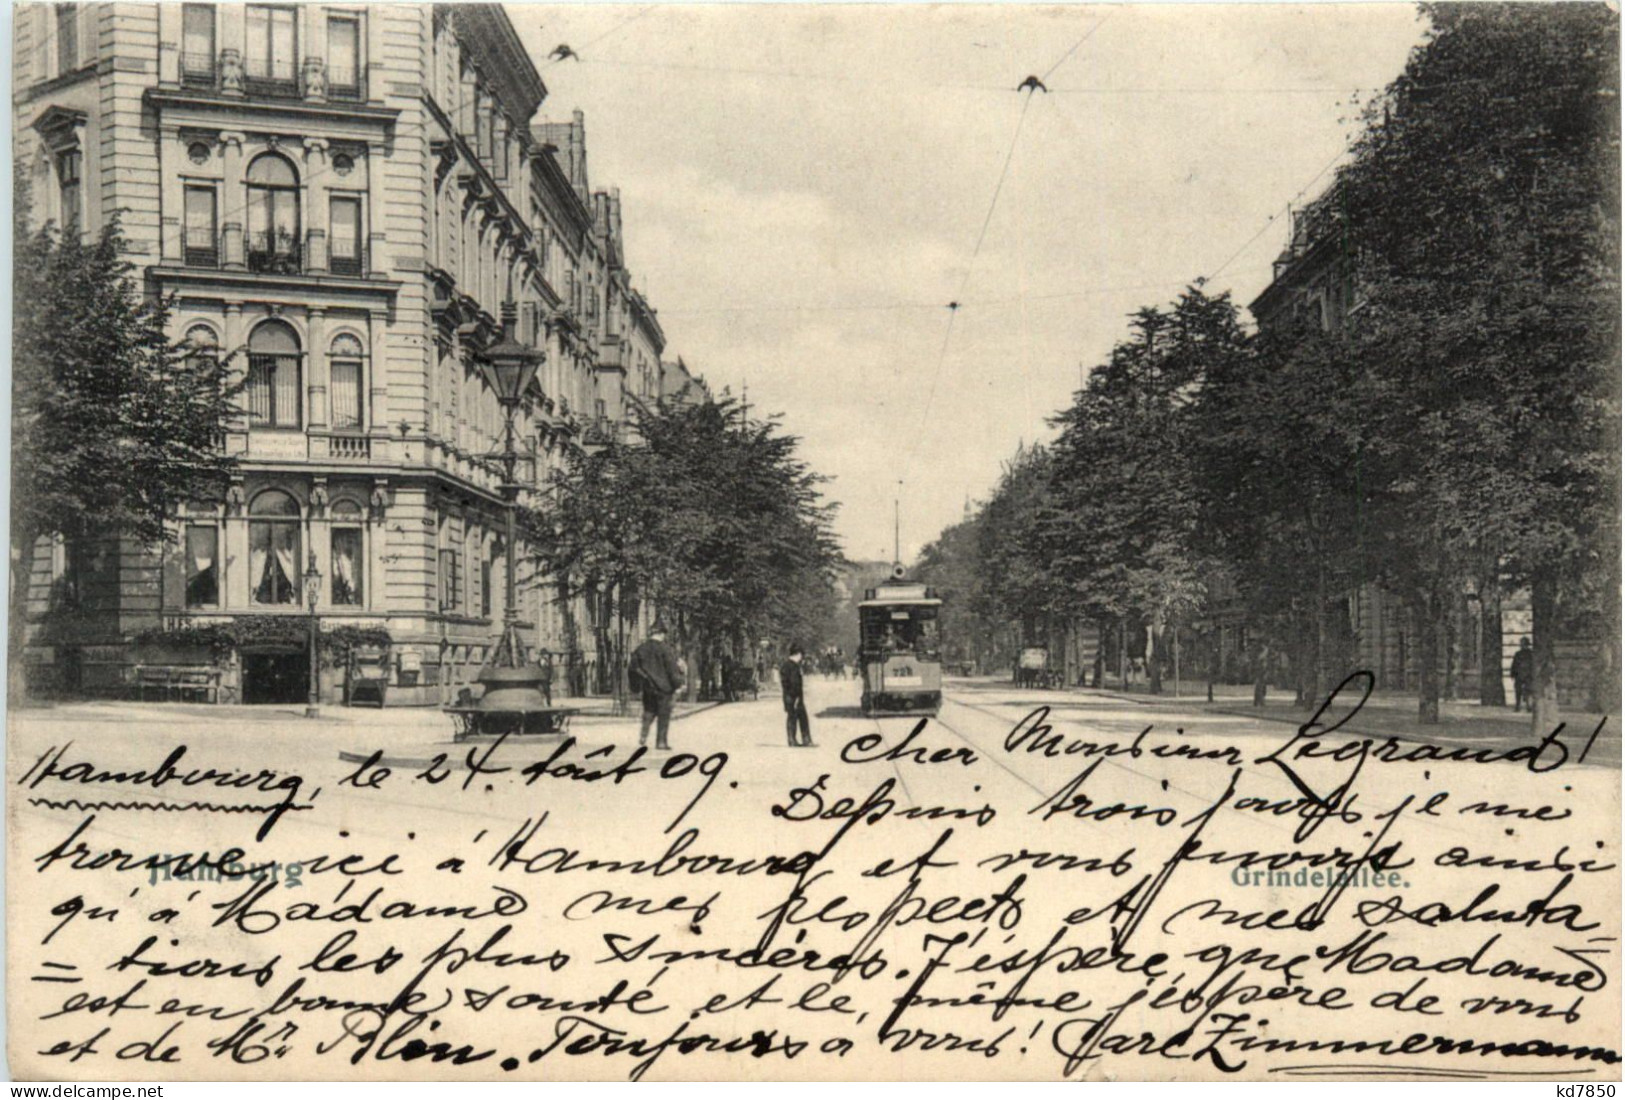 728
Hambourg, le 24. Août 09. Cher Monsieur Legrand!
Depuis trois jours je me
trouve ici à Hambourg, et vous envoie ainsi
Hamburg Grindelallee.
qu'à Madame mes respects et mes saluta=
=tions les plus sincères. J'éspère que Madame
est en bonne santé et le même j'éspère de vous
et de Mr. Blin. Toujours à vous! Carl Zimmermann
kd7850